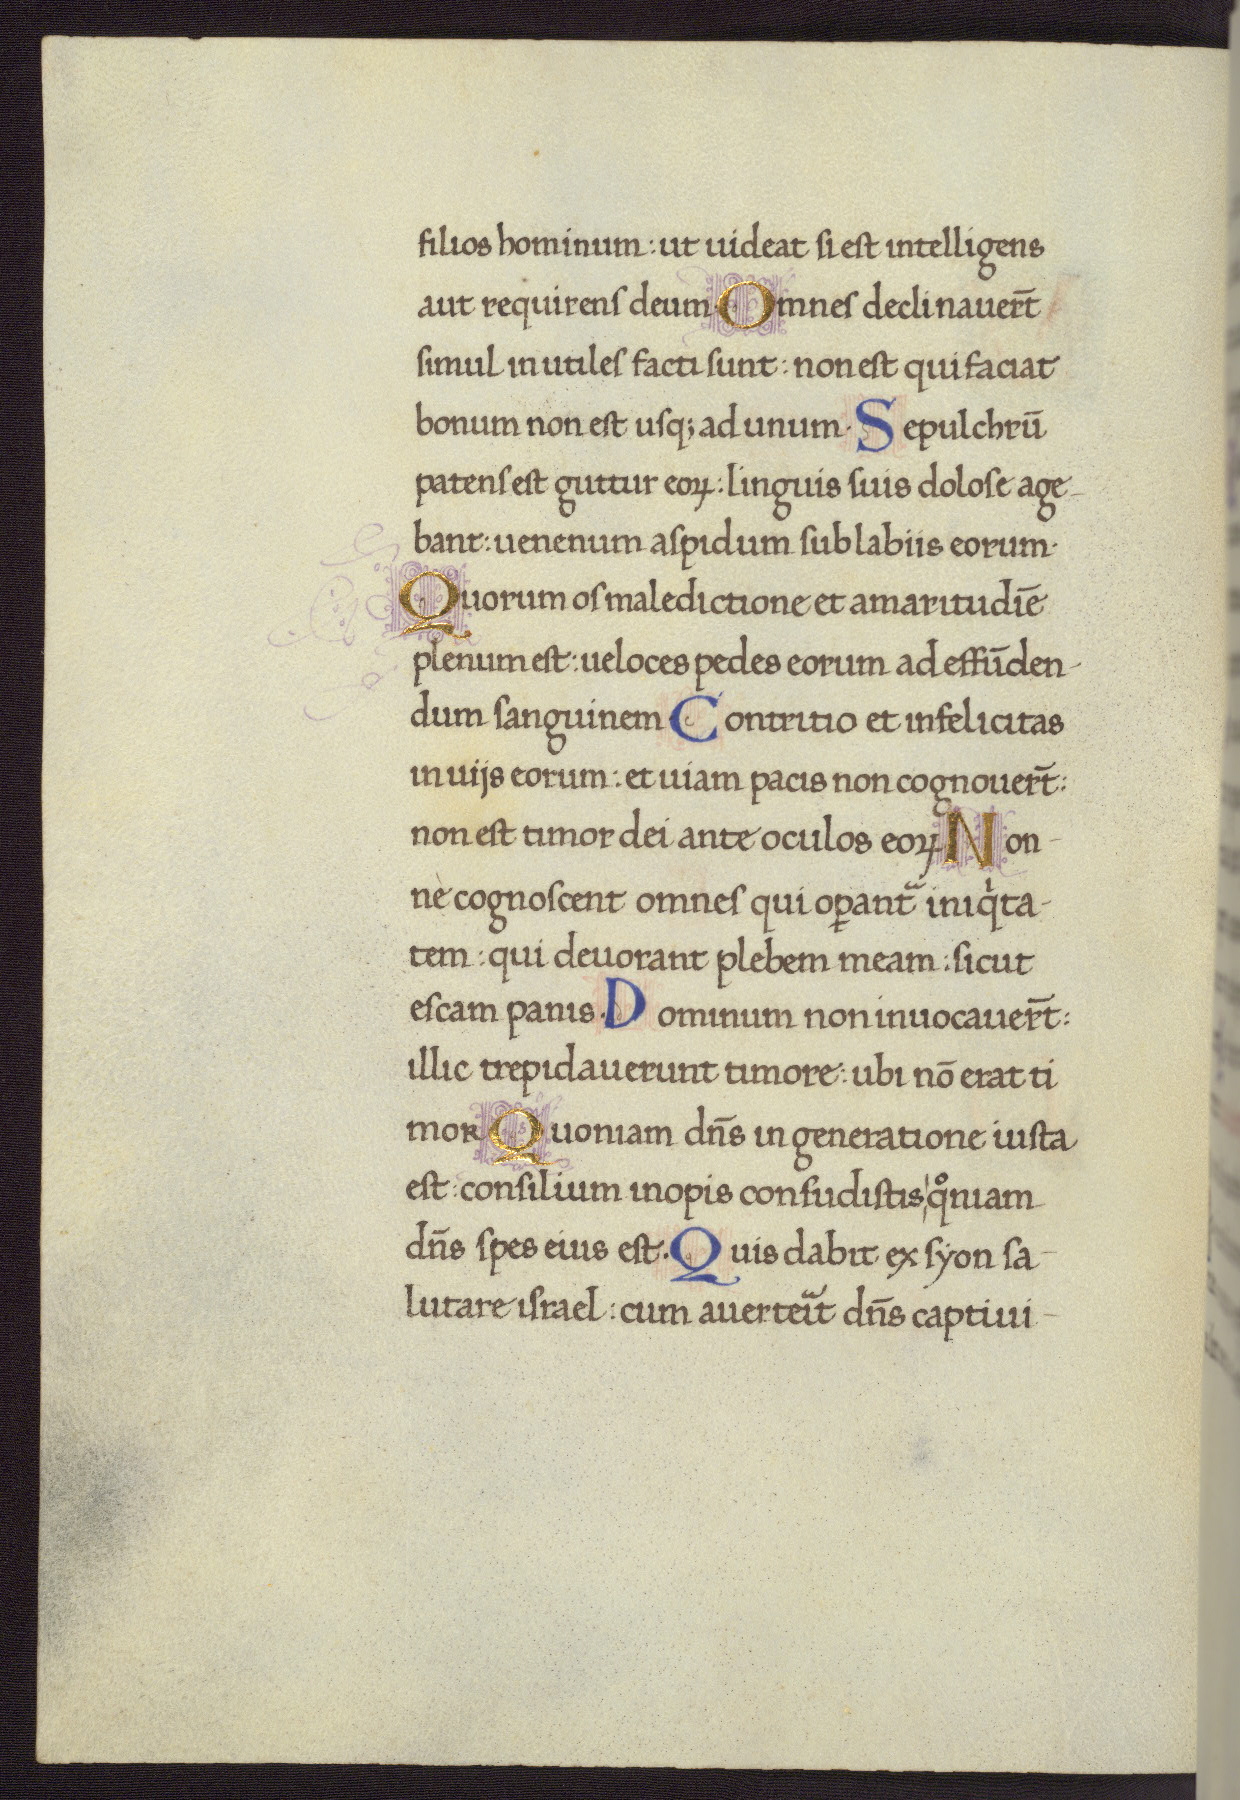 filios hominum : ut uideat si est intelligens
aut requirens deum· Omnes declinauer̄t
simul inutiles facti sunt : non est qui faciat
bonum non est usq; ad unum· Sepulchrū
patens est guttur eoꝝ : linguis suis dolose age-
bant : uenenum aspidum sub labiis eorum·
Quorum os maledictione et amaritudīe
plenum est : ueloces pedes eorum ad effūden-
dum sanguinem Contritio et infelicitas
in uijs eorum : et uiam pacis non cognouer̄t :
non est timor dei ante oculos eoꝝ Non-
ne cognoscent omnes qui oꝑant᷑ iniqͥta-
tem : qui deuorant plebem meam : sicut
escam panis· Dominum non inuocauer̄t :
illic trepidauerunt timore : ubi nō erat ti
mor Quoniam dn̄s in generatione iusta
est : consilium inopis confudistis qͦniam
dn̄s spes eius est· Quis dabit ex syon sa-
lutare israel : cum auerteit᷑ dn̄s captiui-